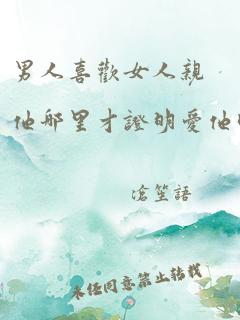 男人喜歡女人親
他哪里才證明愛他
滄笙語
未经同意禁止转载